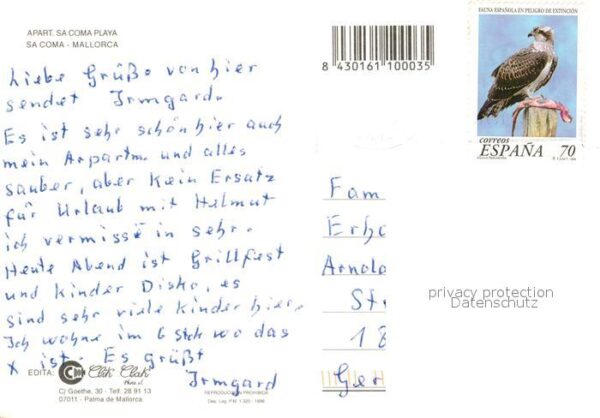 APART. SA COMA PLAYA
SA COMA - MALLORCA
Liebe Grüße von hier
sendet Irmgard.
Es ist sehr schön hier auch
mein Apartm. und alles
sauber, aber kein Ersatz
für Urlaub mit Helmut
ich vermisse in sehr.
Heute Abend ist Grillfest
und Kinder Disko, es
sind sehr viele Kinder hier.
Ich wohne im 6 wo das
X ist. Es grüßt
Irmgard
EDITA: Clik Clak
C/ Goethe, 30 - Telf. 28 91 13
07011 - Palma de Mallorca
REPRODUCCION PROHIBIDA
8 430161 100035
FAUNA ESPAÑOLA EN PELIGRO DE EXTINCIÓN
correos
ESPAÑA 70
Fam
Erho
Arnold
St
18
Ger
privacy protection
Datenschutz